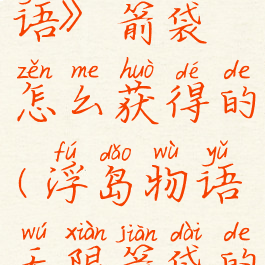 语》箭袋
zěn me huò dé de
怎么获得的
fú dǎo wù yǔ
(浮岛物语
wú xiàn jiàn dài de
无限箭袋的